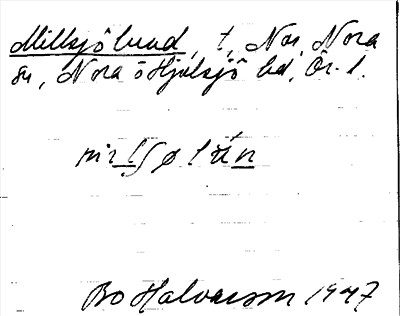 Millsjölund, t, Nor, Nora
sn, Nora o Hjulsjö bd, Ör. l.
Bo Halvarson 1947